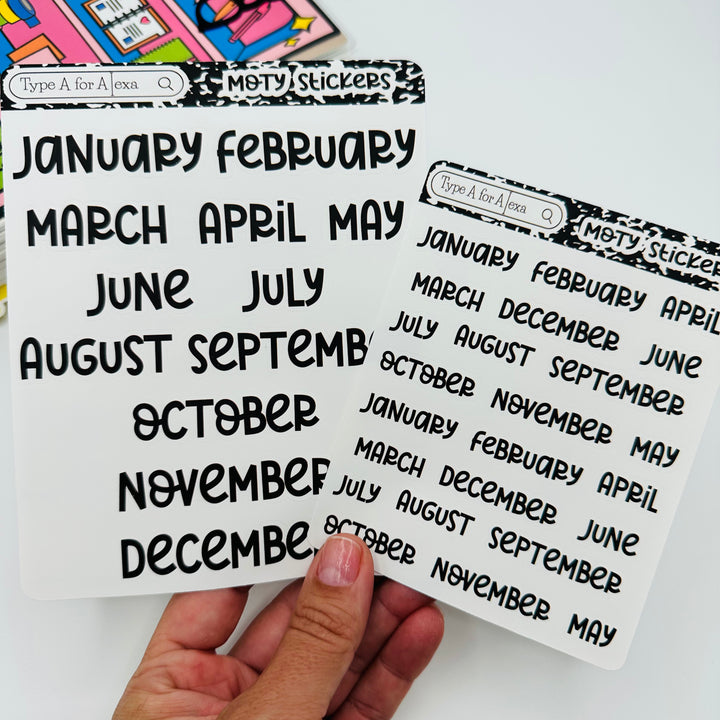 Type A for Alexa
MOTY STICKERS
JANUARY FEBRUARY
MARCH APRIL MAY
JUNE JULY
AUGUST SEPTEMB
OCTOBER
NOVEMBER
DECEMBE
Type A for Alexa
MOTY STICKER
JANUARY FEBRUARY APRIL
MARCH DECEMBER JUNE
JULY AUGUST SEPTEMBER
OCTOBER NOVEMBER MAY
JANUARY FEBRUARY APRIL
MARCH DECEMBER JUNE
JULY AUGUST SEPTEMBER
OCTOBER NOVEMBER MAY